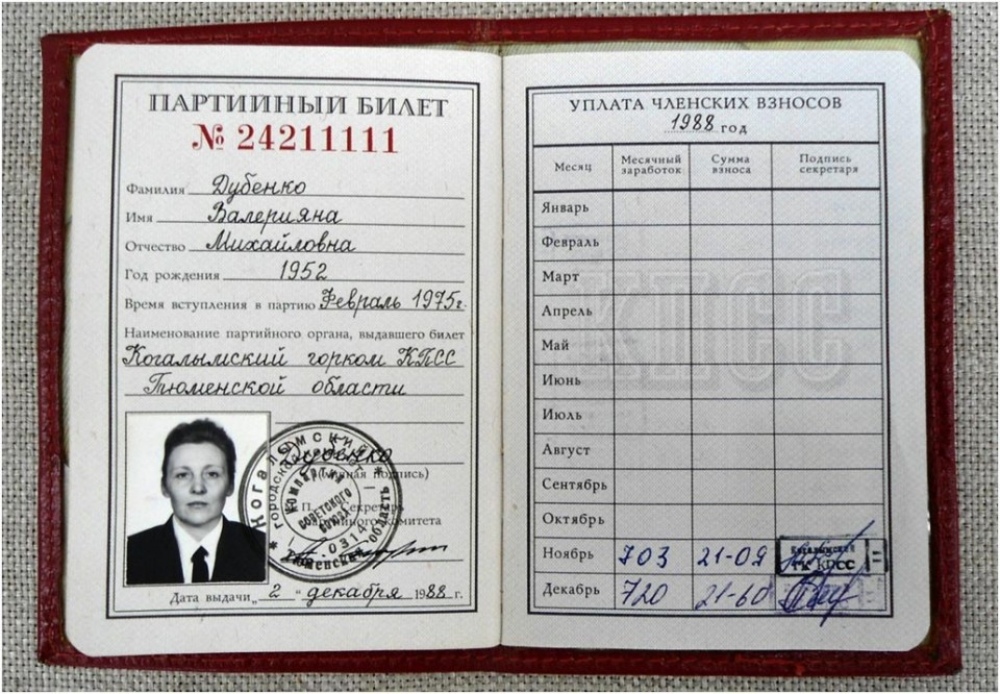 ПАРТИЙНЫЙ БИЛЕТ
№ 24211111
Фамилия Дубенко
Имя Валерияна
Отчество Михайловна
Год рождения 1952
Время вступления в партию Февраль 1975г.
Наименование партийного органа, выдавшего билет
Когалымский горком КПСС
Тюменской области
Дубенко
(личная подпись)
М.П. Секретарь
партийного комитета
Когалымский
городской комитет
Коммунистической партии
Советского
Союза
0314
Тюменская область
Дата выдачи „2“ декабря 1988 г.
УПЛАТА ЧЛЕНСКИХ ВЗНОСОВ
1988 год
Месяц Месячный заработок Сумма взноса Подпись секретаря
Январь
Февраль
Март
Апрель
КПСС
Май
Июнь
Июль
Август
Сентябрь
Октябрь
Ноябрь 703 21-09 Когалымский
ГК КПСС
Декабрь 720 21-60